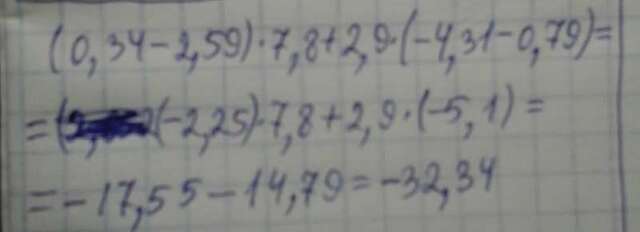 (0,34-2,59)·7,8+2,9·(-4,31-0,79)=
=(-2,25)·7,8+2,9·(-5,1)=
=-17,55-14,79=-32,34